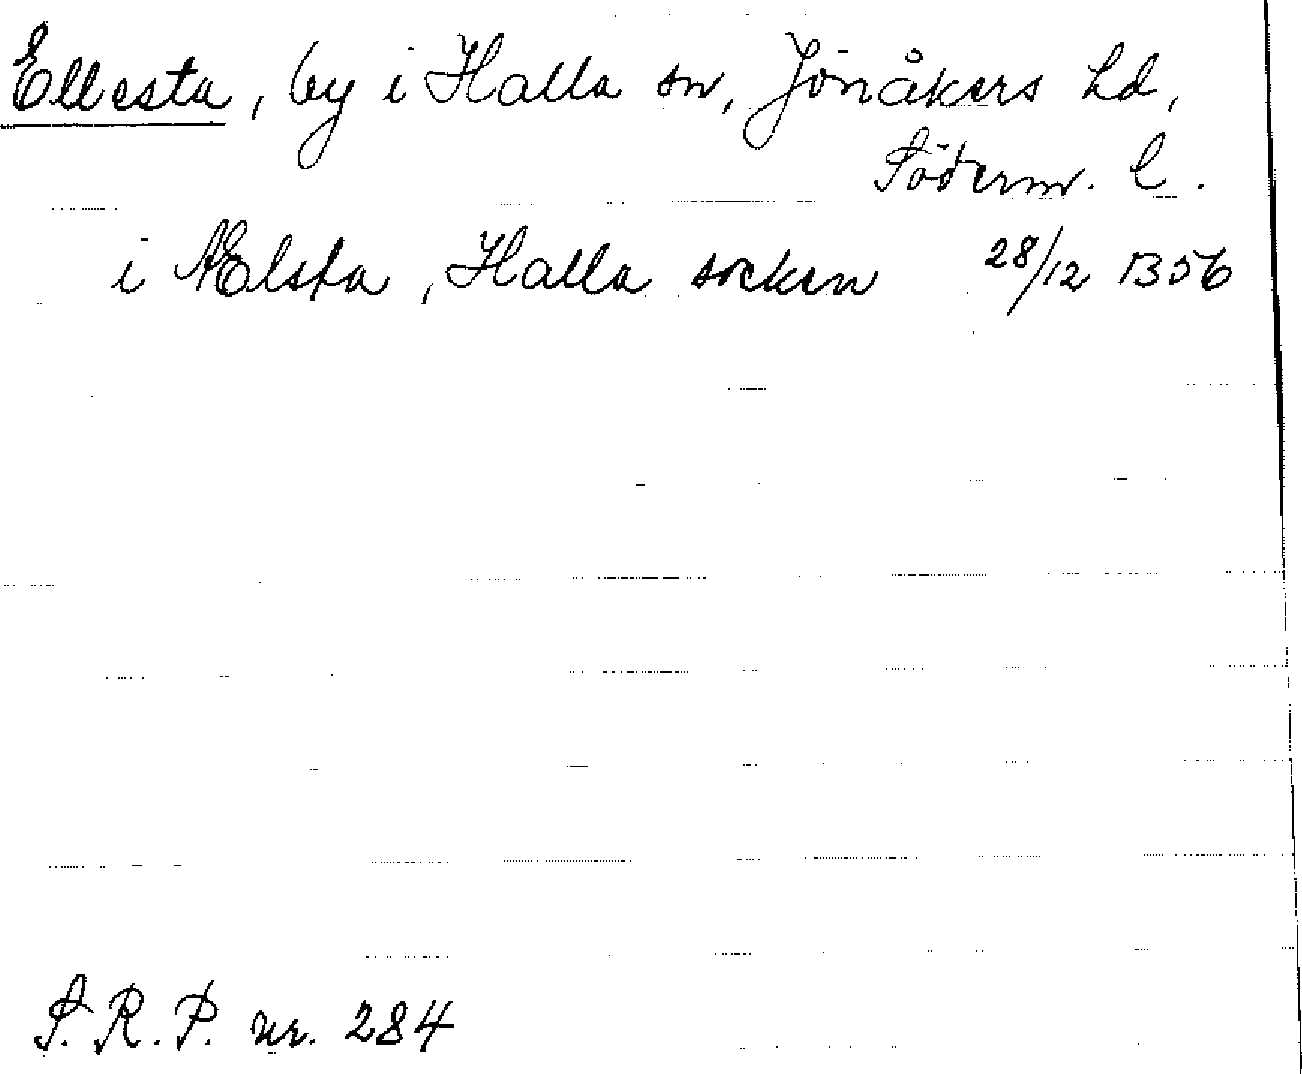 Ellesta, by i Halla sn, Jönåkers hd,
Söderm. l.
i AElsta, Halla socken 28/12 1356
S.R.P. nr. 284